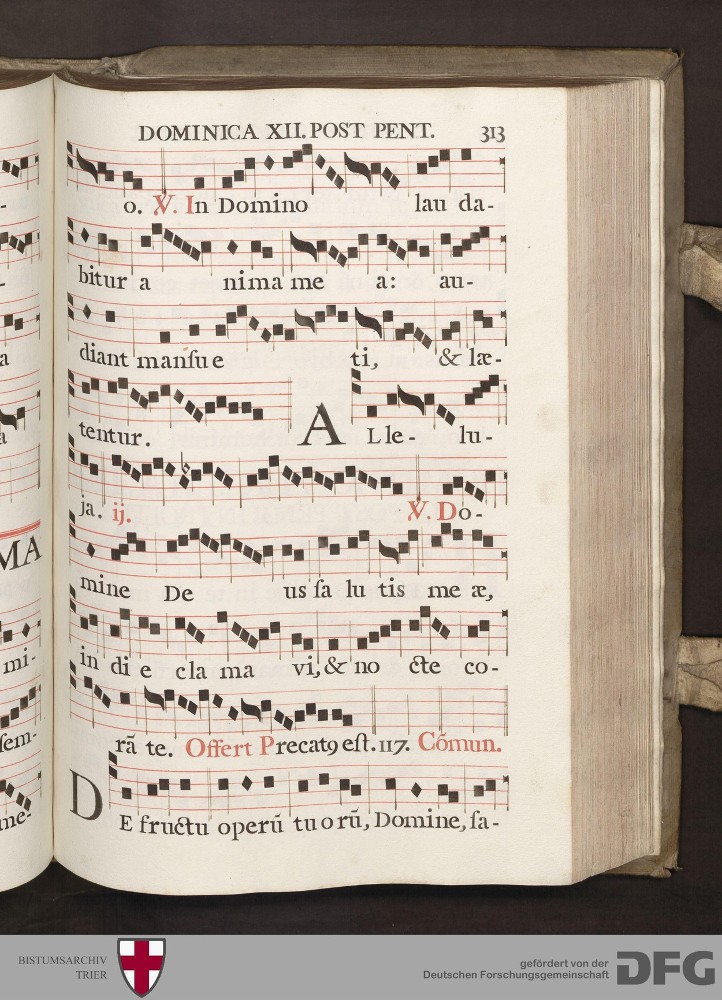 DOMINICA XII. POST PENT. 313
o. V. In Domino lau da-
bitur a nima me a: au-
diant manſu e ti, & læ-
tentur. A Lle- lu-
ja. ij. V. Do-
mine De us ſa lu tis me æ,
in di e cla ma vi, & no cte co-
rã te. Offert Precatꝯ eſt. 117. Cõmun.
DE fructu operũ tu o rũ, Domine, ſa-
a
a
MA
mi-
ſem-
me-
BISTUMSARCHIV
TRIER
gefördert von der
Deutschen Forschungsgemeinschaft
DFG